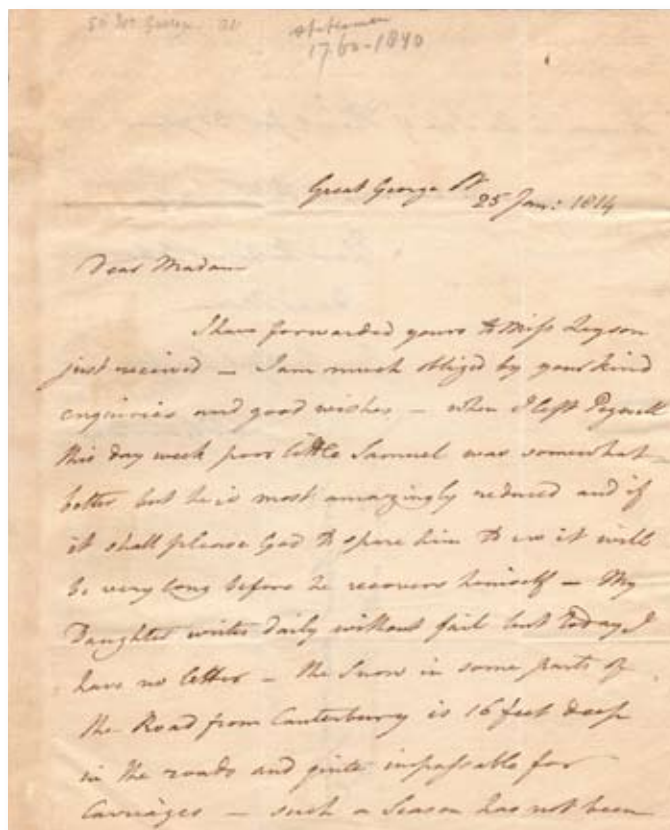 50 Gt George St
statesman
1760-1840
Great George St
25 Jan: 1814
Dear Madam
I have forwarded yours to Miss
just received – I am much obliged by your kind
enquiries and good wishes – when I left Pegwell
this day week poor little Samuel was somewhat
better but he is most amazingly reduced and if
it shall please God to spare him to us it will
be very long before he recovers himself – My
Daughter writes daily without fail but today I
have no letter – the Snow in some parts of
the Road from Canterbury is 16 feet deep
in the roads and quite impassable for
Carriages – such a Season has not been